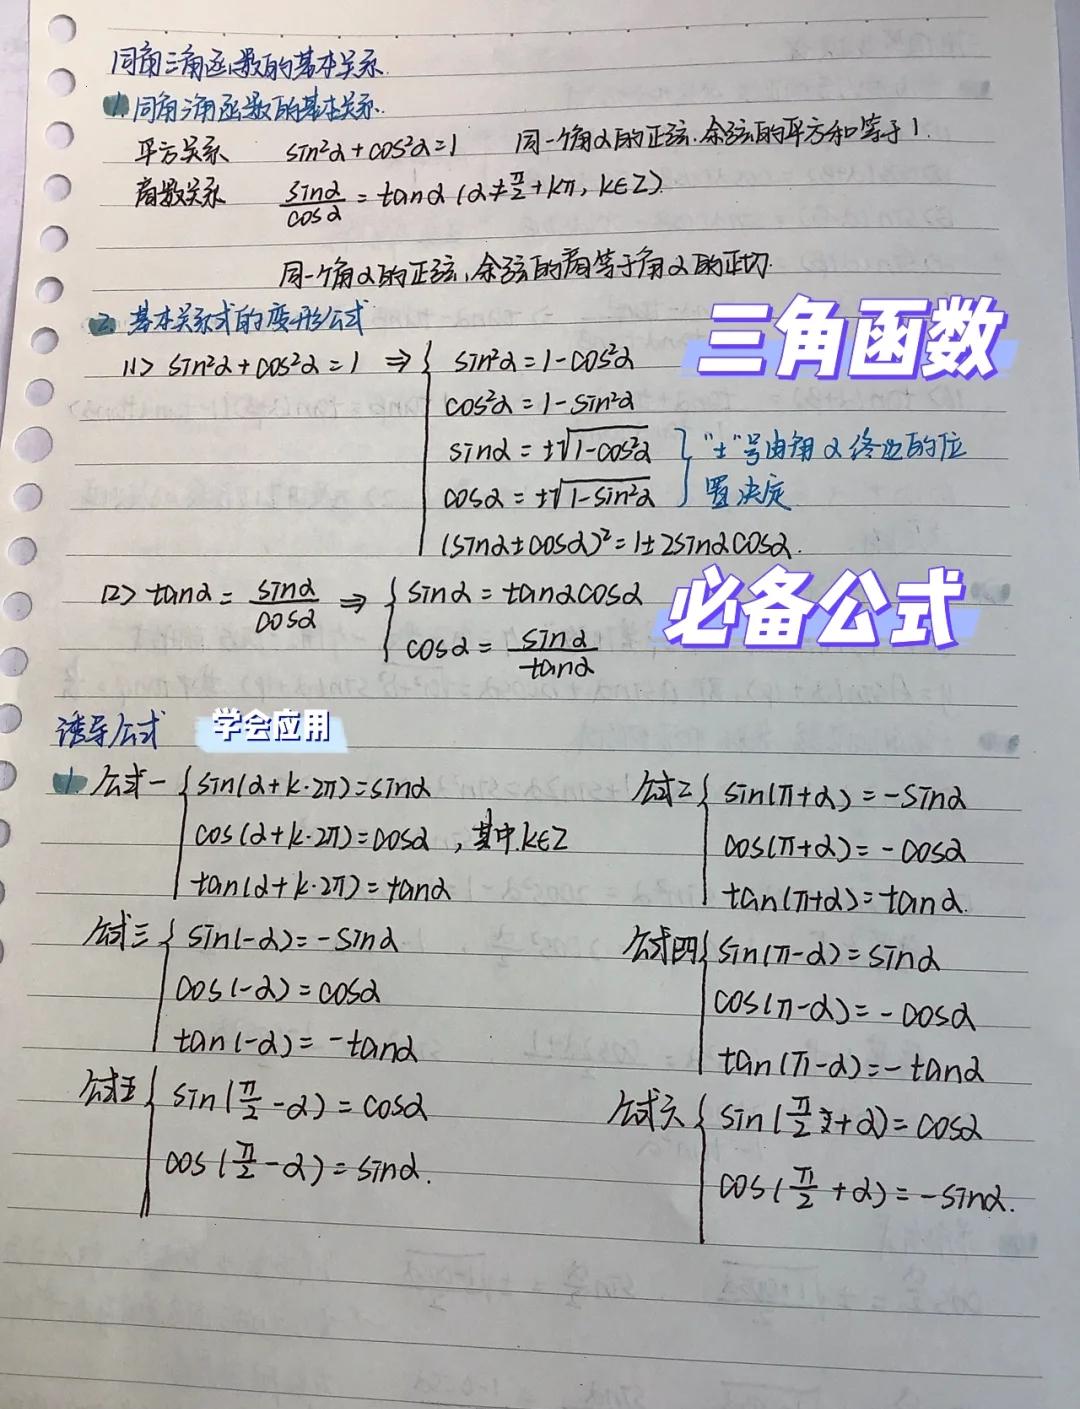 同角三角函数的基本关系.
1. 同角三角函数的基本关系.
平方关系 sin²α+cos²α=1 同一个角α的正弦.余弦的平方和等于1.
商数关系 sinα/cosα = tanα (α≠π/2+kπ, k∈Z).
同一个角α的正弦,余弦的商等于角α的正切.
2. 基本关系式的变形公式
三角函数
(1) sin²α+cos²α=1 ⇒ { sin²α=1-cos²α
cos²α=1-sin²α
sinα=±√1-cos²α } "±"号由角α终边的位
cosα=±√1-sin²α 置决定
(sinα±cosα)²=1±2sinαcosα.
(2) tanα= sinα/cosα ⇒ { sinα=tanαcosα
必备公式
cosα= sinα/tanα
诱导公式 学会应用
1. 公式一 { sin(α+k·2π)=sinα
cos(α+k·2π)=cosα ,其中k∈Z
tan(α+k·2π)=tanα
公式二 { sin(π+α)=-sinα
cos(π+α)=-cosα
tan(π+α)=tanα.
公式三 { sin(-α)=-sinα
cos(-α)=cosα
tan(-α)=-tanα
公式四 { sin(π-α)=sinα
cos(π-α)=-cosα
tan(π-α)=-tanα
公式五 { sin(π/2-α)=cosα
cos(π/2-α)=sinα.
公式六 { sin(π/2+α)=cosα
cos(π/2+α)=-sinα.